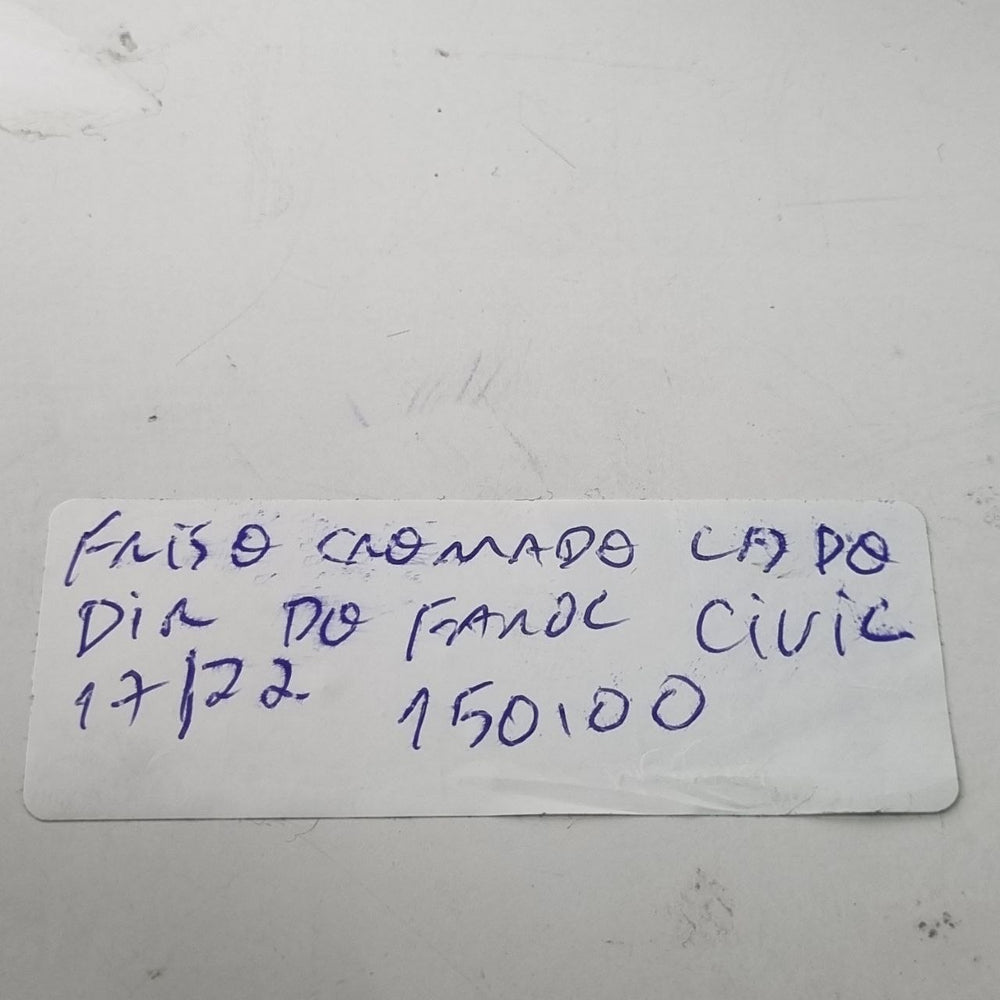 FRISO CROMADO LADO
DIR DO FAROL CIVIC
17/22 150,00